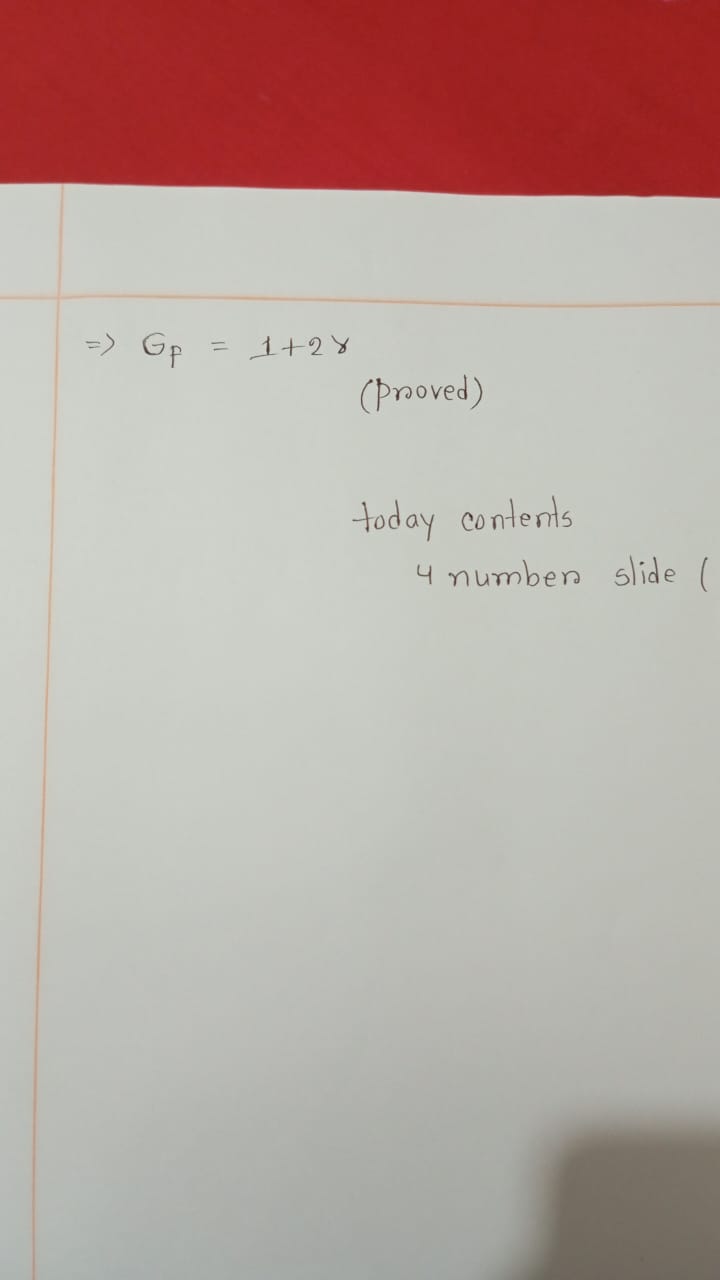 => Gp = 1+2γ
(proved)
today contents
4 number slide (